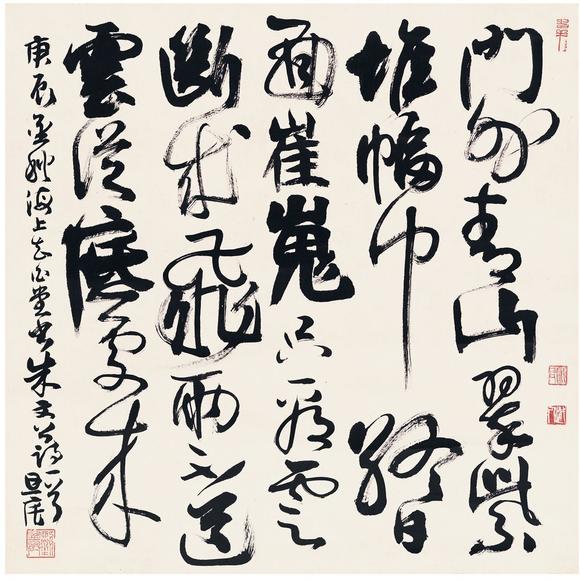 門外青山翠紫
堆幅巾終日
面崔嵬只看雲
斷成飛雨不道
雲從底處來
庚辰孟秋海上 堂書朱文公詩一首